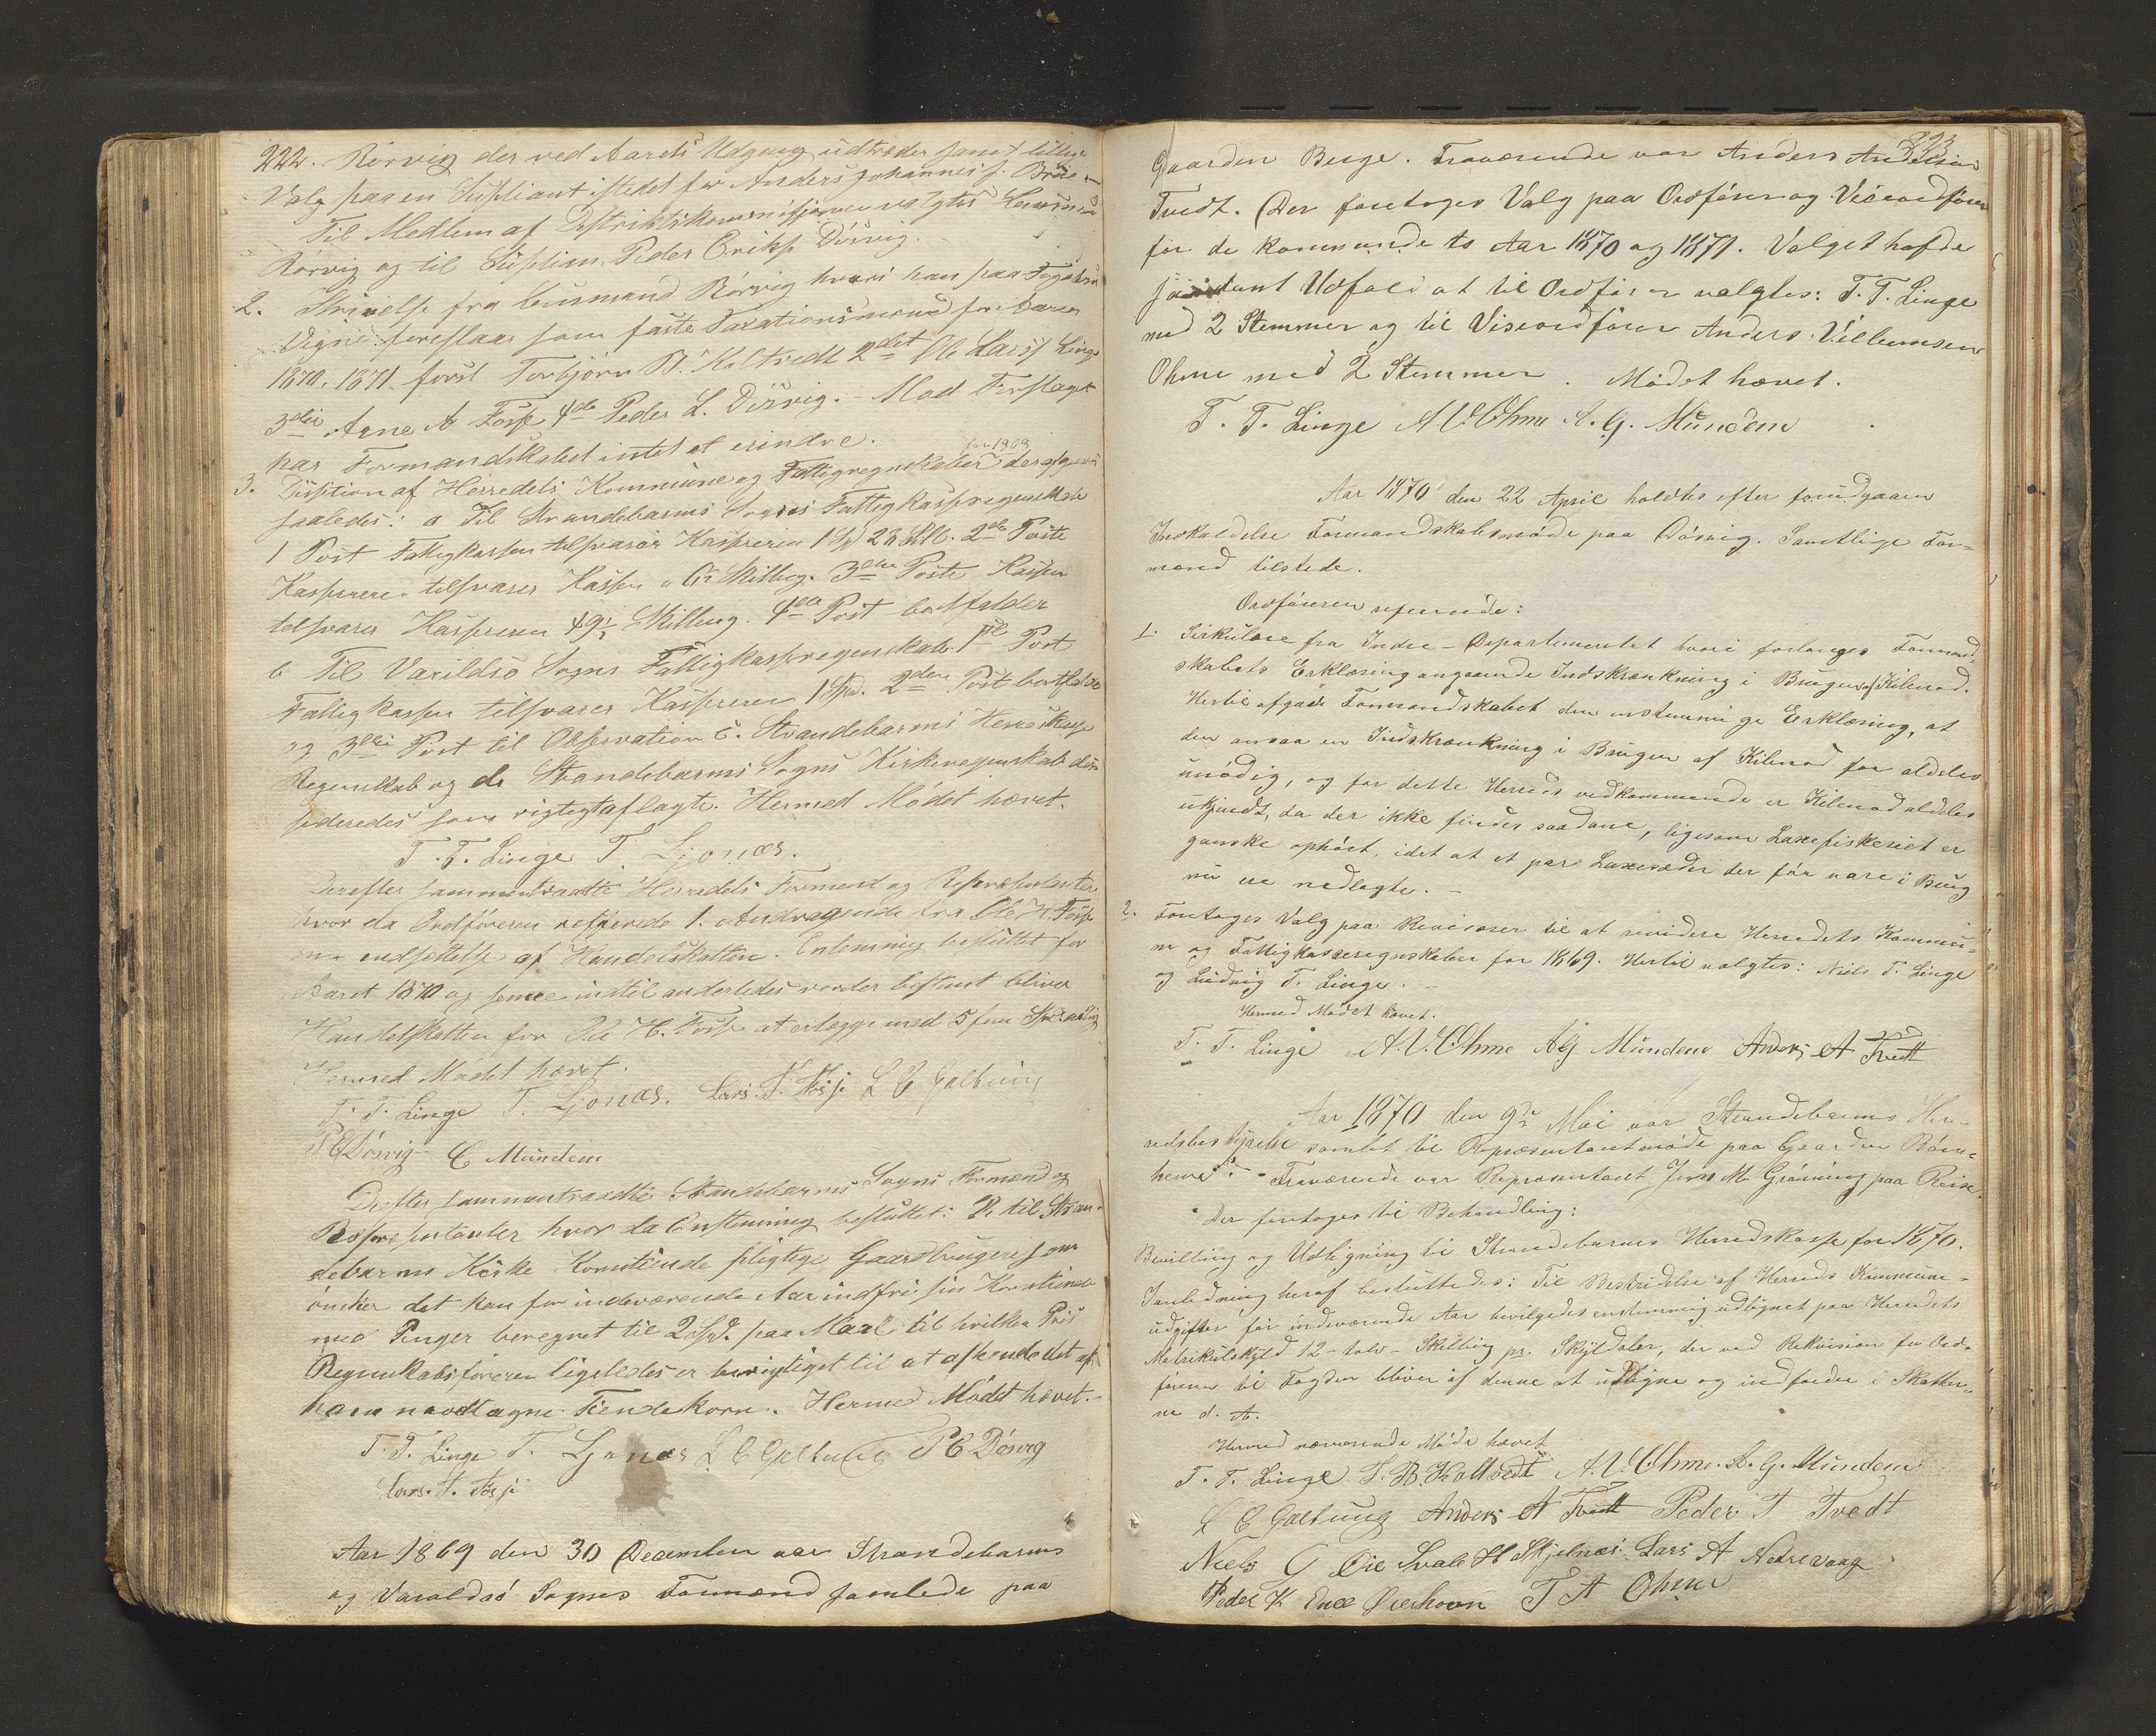 222. Rörvig der ved Aarets Udgang udtræder samt tillige
Valg paa en Supliant istedet for Anders Johanness.
Til Medlem af Distriktskommisjonen valgtes Lensmand
Rörvig og til Suplian Peder Erikss Dösvig.
2. Skrivelse fra Lensmand Rörvig hvori han paa Fogdens
Vegne foreslaar som faste Taxationsmænd for Aaren
1870, 1871. först Torbjörn B. Koltvedt 2det Ole Larss Linge
3die Arne A Fosse 4de Peder L. Dösvig. – Mod Forslaget
har Formandskabet intet at erindre.
for 1969
3. Disition af Herredets Kommune og Fattigregnskaber
saaledes: a Til Strandebarms Sogns Fattigkasseregnskab
1 Post Fattigkassen tilsvarer Kassereren 1 Spd 23 Skl. 2de Poste
Kassereren tilsvarer Kassen Skilling. 3die Poste Kassen
tilsvarer Kassereren 49½ Skilling. 4de Post bortfalder
b Til Varildsö Sogns Fattigkasseregnskab 1ste Post
Fattigkassen tilsvarer Kassereren 1 Spd. 2den Post bortfalder
og 3die Post til Observation c. Strandebarms Herredskasse
Regnskab og d. Strandebarms Sogns Kirkeregnskab deci
sideredes som rigtigt aflagte. Hermed Mödet hævet.
T. T. Linge T. Ljonæs.
Derefter sammentraadte Herredets Formend og Repræsentanter
hvor da Ordföreren refererede 1. Andragende fra Ole H. Fosse
om nedsættelse af Handelskatten. Enstemmig besluttet for
Aaret 1870 og senere indtil anderledes vorder bestemt bliver
Handelskatten for Ole H. Fosse at erlægge med 5 fem Spd aarlig
Hermed Mödet hævet.
T. T. Linge T. Ljonæs. Lars. T. Fosse L E Galtung
P E Dösvig E Mundem
Derefter sammentraadte Strandebarms Sogns Formænd og
Repræsentanter hvor da Enstemmig besluttet: De til Stran-
debarms Kirke Korntiende pligtige Gaardbrugere som
önsker det kan for indeværende Aar indfri sin Korntiende
med Penger beregnet til 2 Spd. paa Maal til hvilken Pris
Regnskabsföreren ligeledes er berigtiget til at afhende det af
ham modtagne Tiendekorn. Hermed Mödet hævet.
T. T. Linge T. Ljonæs L E Galtung P E Dösvig
Lars. T. Fosse
Aar 1869 den 30 December var Strandebarms
og Varaldsö Sognes Formænd samlede paa
223
Gaarden Berge. Fraværende var Anders Andersen
Tvedt. Der foretoges Valg paa Ordförer og Viceordförer
for de kommende to Aar 1870 og 1871. Valget hafde
saadant Udfald at til Ordförer valgtes: T. T. Linge
med 2 Stemmer og til Viseordförer Anders Villumsen
Ohme med 2 Stemmer. Mödet hævet.
T. T. Linge A. V. Ohme A. G. Mundem
Aar 1870 den 22 April holdtes efter forudgaaen
Indkaldelse Formandskabsmöde paa Dösvig. Samtlige For-
mænd tilstede.
Ordföreren refererede:
1. Sirkulære fra Indre-Departementet hvori forlanges Formand-
skabets Erklæring angaaende Indskrænkning i Brugen af Kilenod.
Hertil afgav Formandskabet den enstemmige Erklæring, at
den ansaa en Indskrænkning i Brugen af Kilenod for aldeles
unödig, og for dette Herreds vedkommende er Kilenod aldeles
ukjendt, da der ikke findes saadane, ligesom Laxefiskeriet er
ganske ophört, idet at et par Laxevæder der för vare i Brug
nu ere nedlagte. –
2. Foretoges Valg paa Revisorer til at revidere Herredets Kommu-
ne og Fattigkasseregnskaber for 1869. Hertil valgtes: Niels T. Linge
og Ludvig T. Linge. –
Hermed Mödet hævet.
T. T. Linge A. V. Ohme A G Mundem Anders A Tvedt
Aar 1870 den 9de Mai var Strandebarms Her-
redsbestyrelse samlet til Repræsentantmöde paa Gaarden Böm-
heim. Fraværende var Repræsentant Jens M. Gröning paa Reise.
Der foretoges til Behandling:
Bevilling og Udligning til Strandebarms Herredskasse for 1870.
I anledning heraf besluttedes: Til Bestridelse af Herreds Kommune-
udgifter for indeværende Aar bevilgedes enstemmig udlignet paa Herredets
Matrikulskyld 12 - tolv - Skilling pr. Skylddaler, der ved Rekvision fra Ord-
föreren til Fogden bliver af denne at udligne og indfordre i Skatter-
ne d. A.
Hermed nærværende Möde hævet
T. T. Linge T. B. Koltvedt A. V. Ohme. A. G. Mundem
L E Galtung Anders A Tvedt Peder T Tvedt
Niels O Øie Svale H Skjelnæs Lars A Nedrevaag
Peder K Enæ Øierhavn T A Ohme